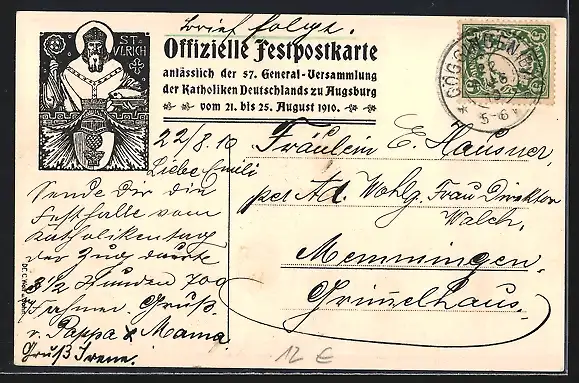 Brief folgt.
ST. ULRICH
Offizielle Festpostkarte
anlässlich der 57. General-Versammlung
der Katholiken Deutschlands zu Augsburg
vom 21. bis 25. August 1910.
GÖGGINGEN
5-6
5
22/8.10
Liebe Emili
Sende Dir die
Festhalle vom
Katholikentag
der Zug dauerte
3 1/2 Stunden 700
Fahnen. Gruß
v. Pappa & Mama
Gruß Irene.
Fräulein E. Hausner,
per Ad. Wohlg. Frau Direktor
Walch,
Memmingen.
Grimmelhaus.
12 €